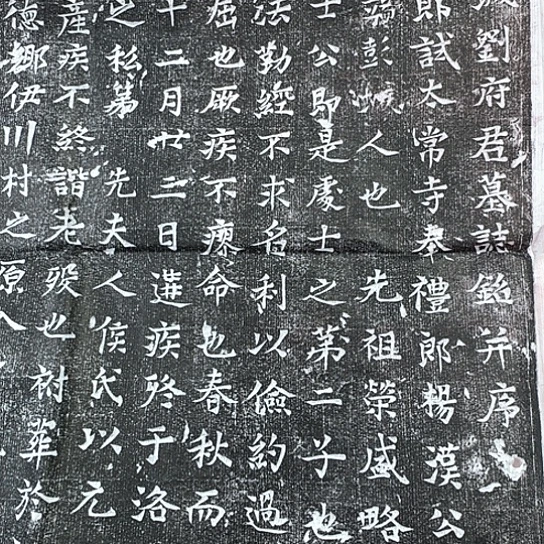 劉府君墓誌銘并序
郎試太常寺奉禮郎楊漢公
彭城人也 先祖榮盛略
士公即是處士之第二子也
法勤經不求名利以儉約過
屈也厥疾不瘳命也春秋而
十二月廿三日遘疾終于洛
之私第 先夫人侯氏以元
產疾不終諧老歿也祔葬於
德鄉伊川村之原